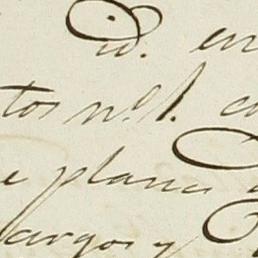 id. en
tos n.º 1. co
e plana
largos y